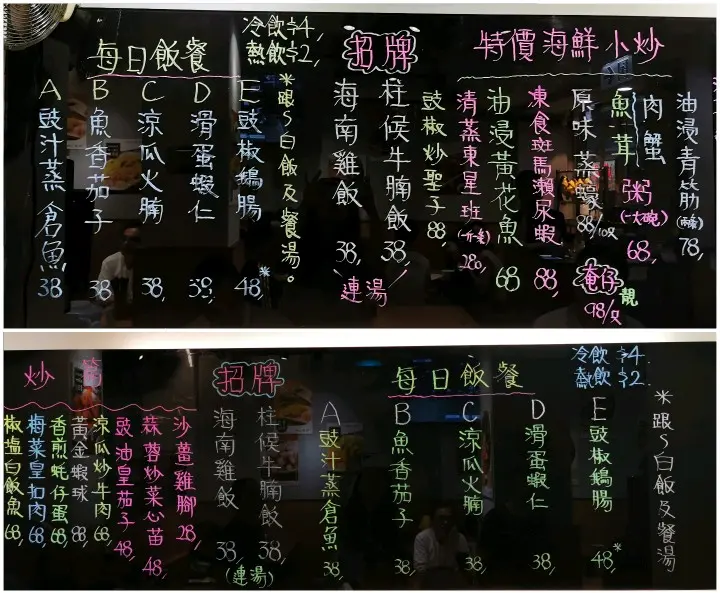 每日飯餐
冷飲+4,
熱飲+2,
A 豉汁蒸倉魚 38
B 魚香茄子 38
C 涼瓜火腩 38,
D 滑蛋蝦仁 38,
E 豉椒鵝腸 48,*
*跟S白飯及餐湯。
招牌
海南雞飯 38,
柱候牛腩飯 38,
連湯
特價海鮮小炒
豉椒炒聖子 88,
清蒸東星斑(一條) 280,
油浸黃花魚 68
凍食斑馬瀨尿蝦 88,
原味蒸蠔 88/10只
奄仔 靚 98/只
魚茸肉蟹粥(一大碗) 68,
油浸青筋 78,
招牌
海南雞飯 38,
柱候牛腩飯 38,
(連湯)
沙薑雞腳 28,
蒜蓉炒菜心苗 48,
豉油皇茄子 48,
涼瓜炒牛肉 68,
黃金蝦球 88,
香煎蚝仔蛋 68,
梅菜皇扣肉 68,
椒塩白飯魚 68,
每日飯餐
冷飲+4
熱飲+2.
A 豉汁蒸倉魚 38,
B 魚香茄子 38,
C 涼瓜火腩 38,
D 滑蛋蝦仁 38,
E 豉椒鵝腸 48,*
*跟S白飯及餐湯